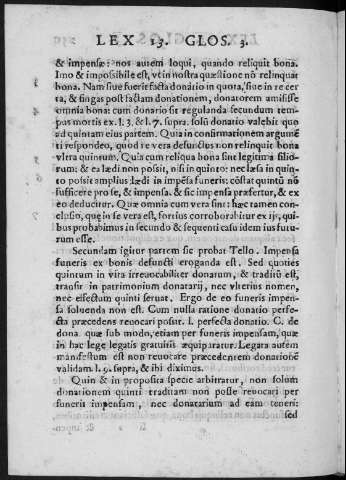 LEX 13. GLOS. 3.
& impensæ: nos autem loqui, quando reliquit bona.
Imo & impossibile est, vt in nostra quæstione nō relinquat
bona. Nam siue fuerit facta donatio in quota, siue in re cer
ta, & singas post factam donationem, donatorem amisisse
omnia bona: cum donatio sit regulanda secundum tem-
pus mortis ex l. 3, & l. 7. supra. solū donatio valebit quo
ad quintam eius partem. Quia in confirmationem argumē
ti respondeo, quod re vera defunctus non relinquit bona
vltra quintum. Quia cum reliqua bona sint legitima filio-
rum: & ea lædi non possit, nisi in quinto: nec læsa in quin-
to possit amplius lædi in impēsa funeris: cōstat quintū nō
sufficere prose, & impensa. & sic impensa præfertur, & ex
eo deducitur. Quæ omnia cum vera sint: hæc tamen con-
clusio, que in se vera est, fortius corroborabitur ex ijs, qui-
bus probabimus in secundo & sequenti casu idem ius futu-
rum esse.
Secundam igitur partem sic probat Tello. Impensa
funeris ex bonis defuncti eroganda est. Sed quoties
quintum in vita irreuocabiliter donatum, & traditū est,
transit in patrimonium donatarij, nec vlterius nomen,
nec effectum quinti seruat. Ergo de eo funeris impen-
sa soluenda non est. Cum nulla ratione donatio perfe-
cta præcedens reuocari possit. l. perfecta donatio. C. de
dona. quæ sub modo, etiam per funeris impensam, quæ
in hac lege legatis gratuitis æquiparatur. Legata autem
manifestum est non reuocare præcedentem donationē
validam. l. 9. supra, & ibi diximus.
Quin & in proposita specie arbitratur, non solum
donationem quinti traditam non posse reuocari per
funeris impensam, nec donatarium ad eam teneri:
sed